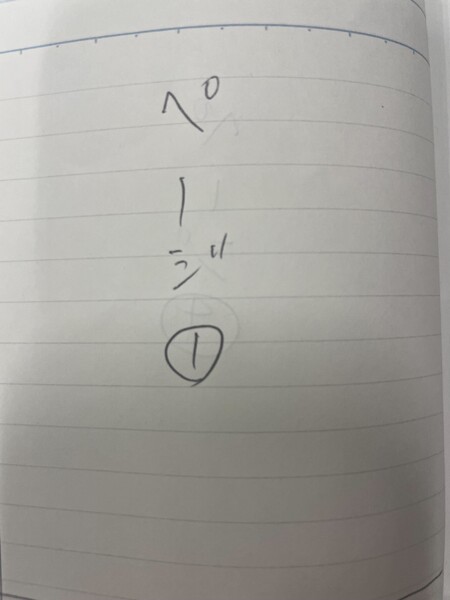 ページ①